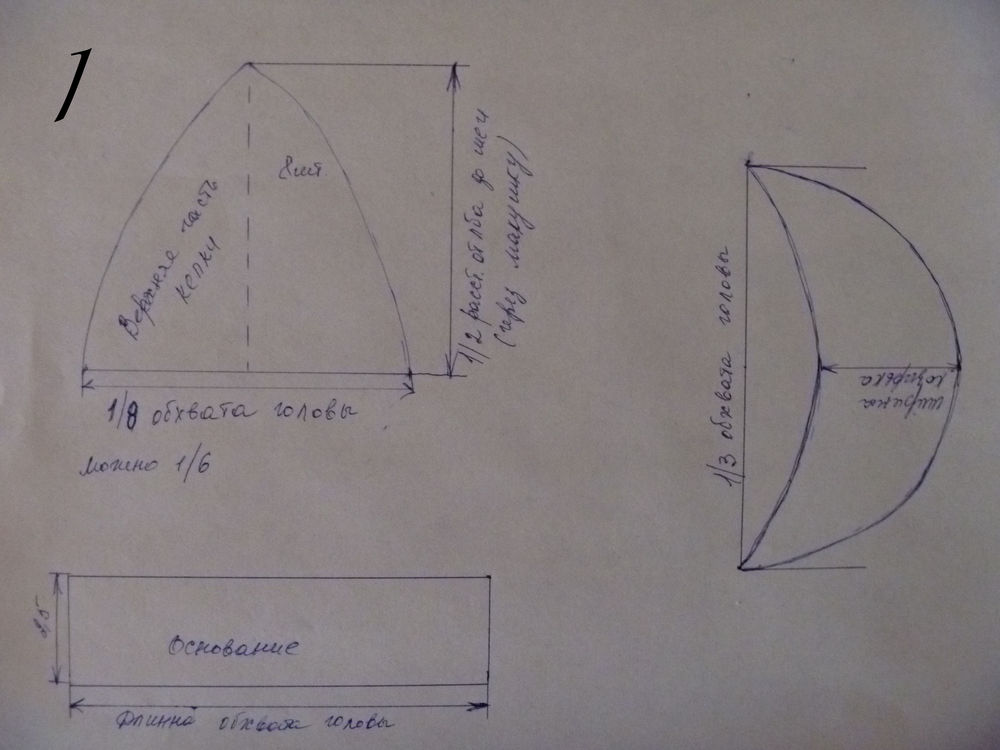 1
8шт
Верхняя часть
кепки
1/2 расст. от лба до шеи
(через макушку)
1/8 обхвата головы
можно 1/6
1/3 обхвата головы
ширина
козырька
2,5
Основание
Длинна обхвата головы